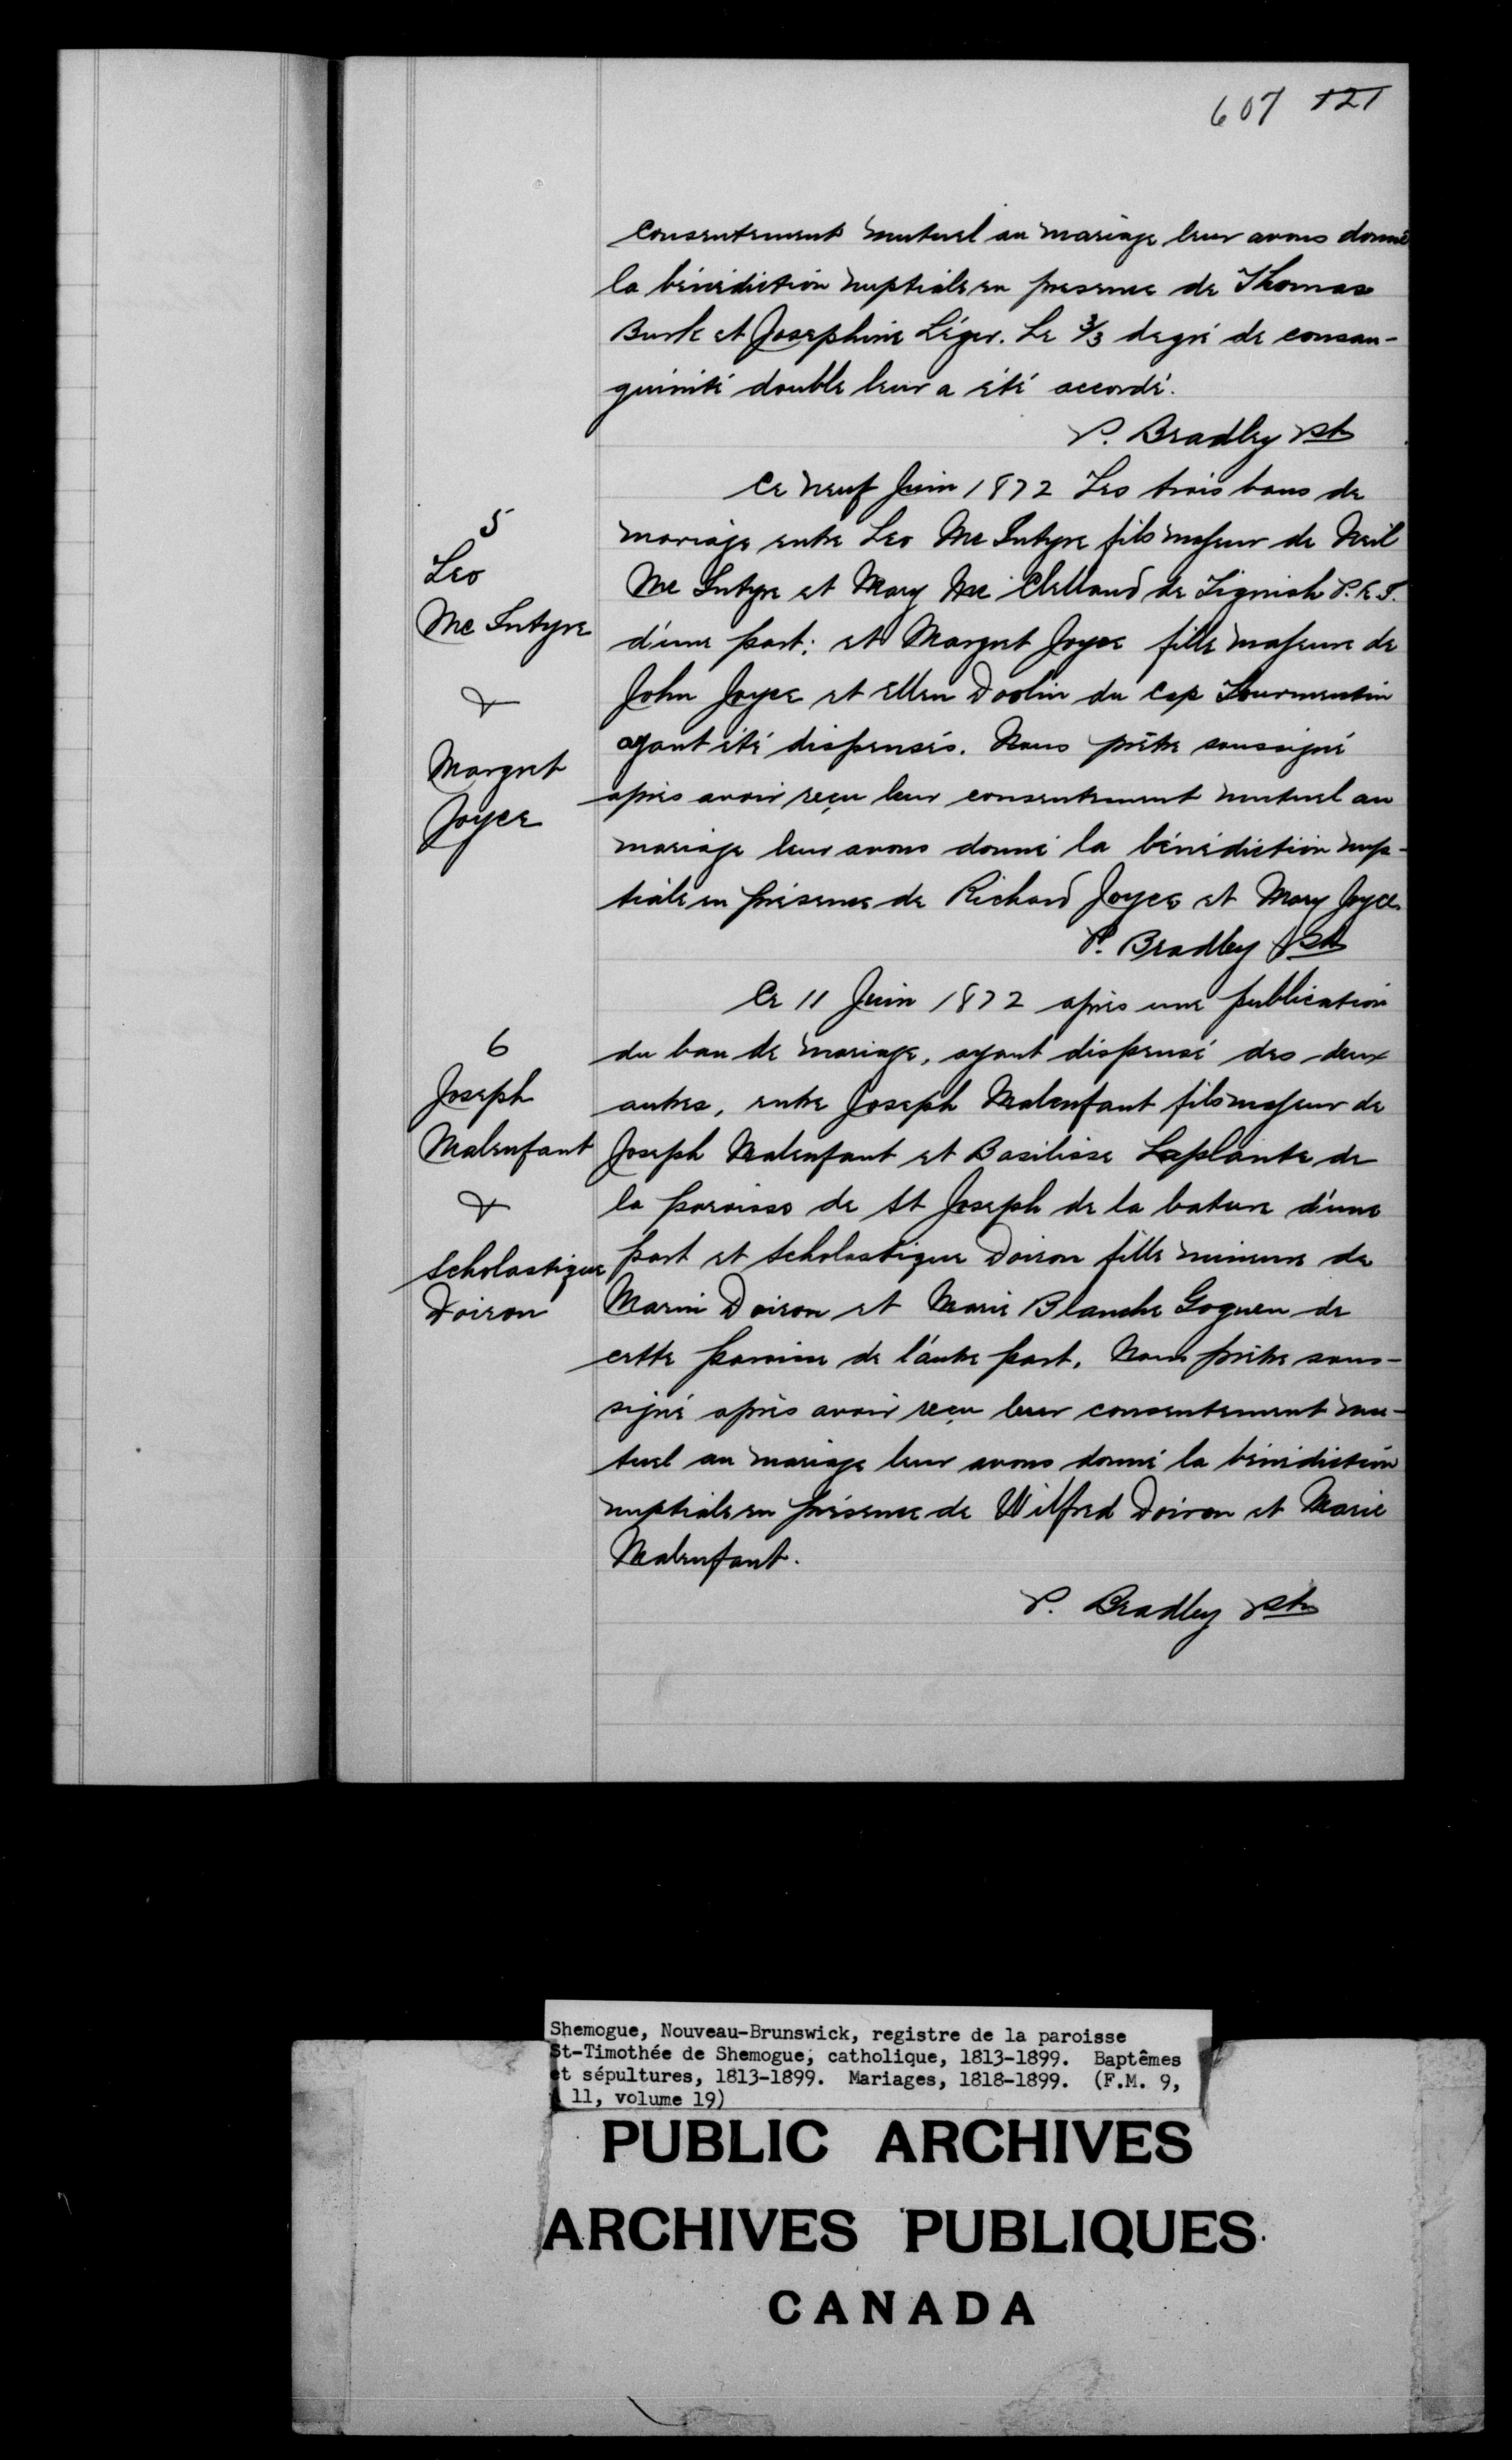 607 121
consentement mutuel au mariage leur avons donné
la bénédiction nuptiale en presence de Thomas
Burk et Josephine Léger. Le 3/3 degré de consan-
guinité double leur a été accordé.
P. Bradley ptr
Ce neuf Juin 1872 Les trois bans de
mariage entre Leo Mc Intyre fils majeur de Neil
Mc Intyre et Mary Mc Clelland de Tignish P.E.I.
d'une part; et Margret Joyce fille majeure de
John Joyce et Ellen Doolin du Cap Tourmentin
ayant été dispensés. Nous prêtre soussigné
après avoir reçu leur consentement mutuel au
mariage leur avons donné la bénédiction nup-
tiale en présence de Richard Joyce et Mary Joyce.
P. Bradley ptr
5
Leo
Mc Intyre
&
Margret
Joyce
Ce 11 Juin 1872 après une publication
du ban de mariage, ayant dispensé des deux
autres, entre Joseph Malenfant fils majeur de
Joseph Malenfant et Basilisse Laplante de
la paroisse de St Joseph de la bature d'une
part et Scholastique Doiron fille mineure de
Marin Doiron et Marie Blanche Goguen de
cette paroisse de l'autre part, Nous prêtre sous-
signé après avoir reçu leur consentement mu-
tuel au mariage leur avons donné la bénédiction
nuptiale en présence de Wilfred Doiron et Marie
Malenfant.
P. Bradley ptr
6
Joseph
Malenfant
&
Scholastique
Doiron
Shemogue, Nouveau-Brunswick, registre de la paroisse
St-Timothée de Shemogue, catholique, 1813-1899. Baptêmes
et sépultures, 1813-1899. Mariages, 1818-1899. (F.M. 9,
11, volume 19)
PUBLIC ARCHIVES
ARCHIVES PUBLIQUES
CANADA